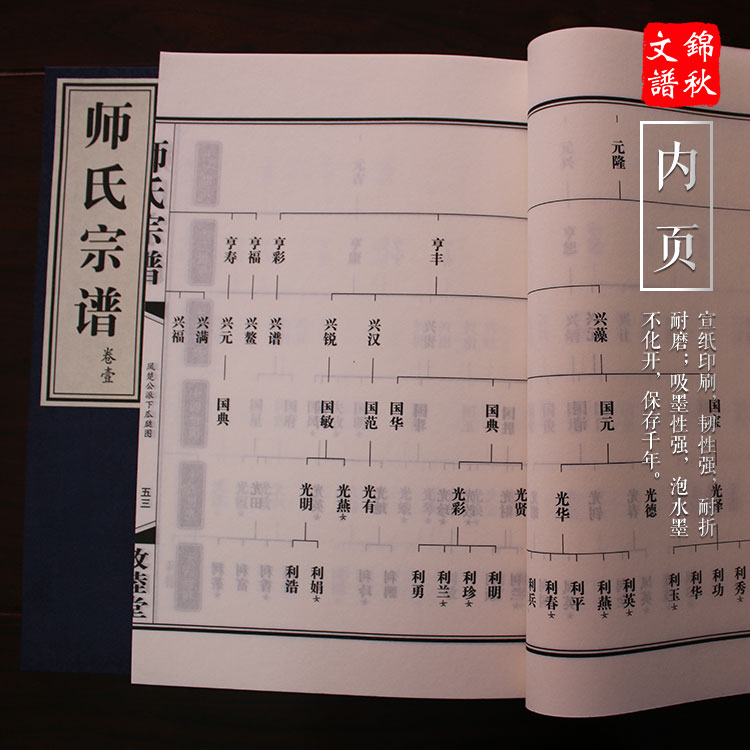 錦秋
文譜
内页
宣纸印刷，韧性强、耐折
耐磨；吸墨性强，泡水墨
不化开，保存千年。
师氏宗谱
卷壹
师氏宗谱
凤楚公派下瓜瓞图
五三
敦睦堂
元隆
亨寿 亨福 亨彩 亨丰
兴福 兴满 兴元 兴鳌 兴谱 兴锐 兴汉 兴藻
国典 国敏 国范 国华 国典 国元 国宝
光明 光燕☆ 光有 光彩 光贤 光华 光德 光泽
利浩 利娟☆ 利勇 利兰☆ 利珍☆ 利明 利兵 利春☆ 利平 利燕☆ 利英☆ 利玉☆ 利华 利功 利秀☆